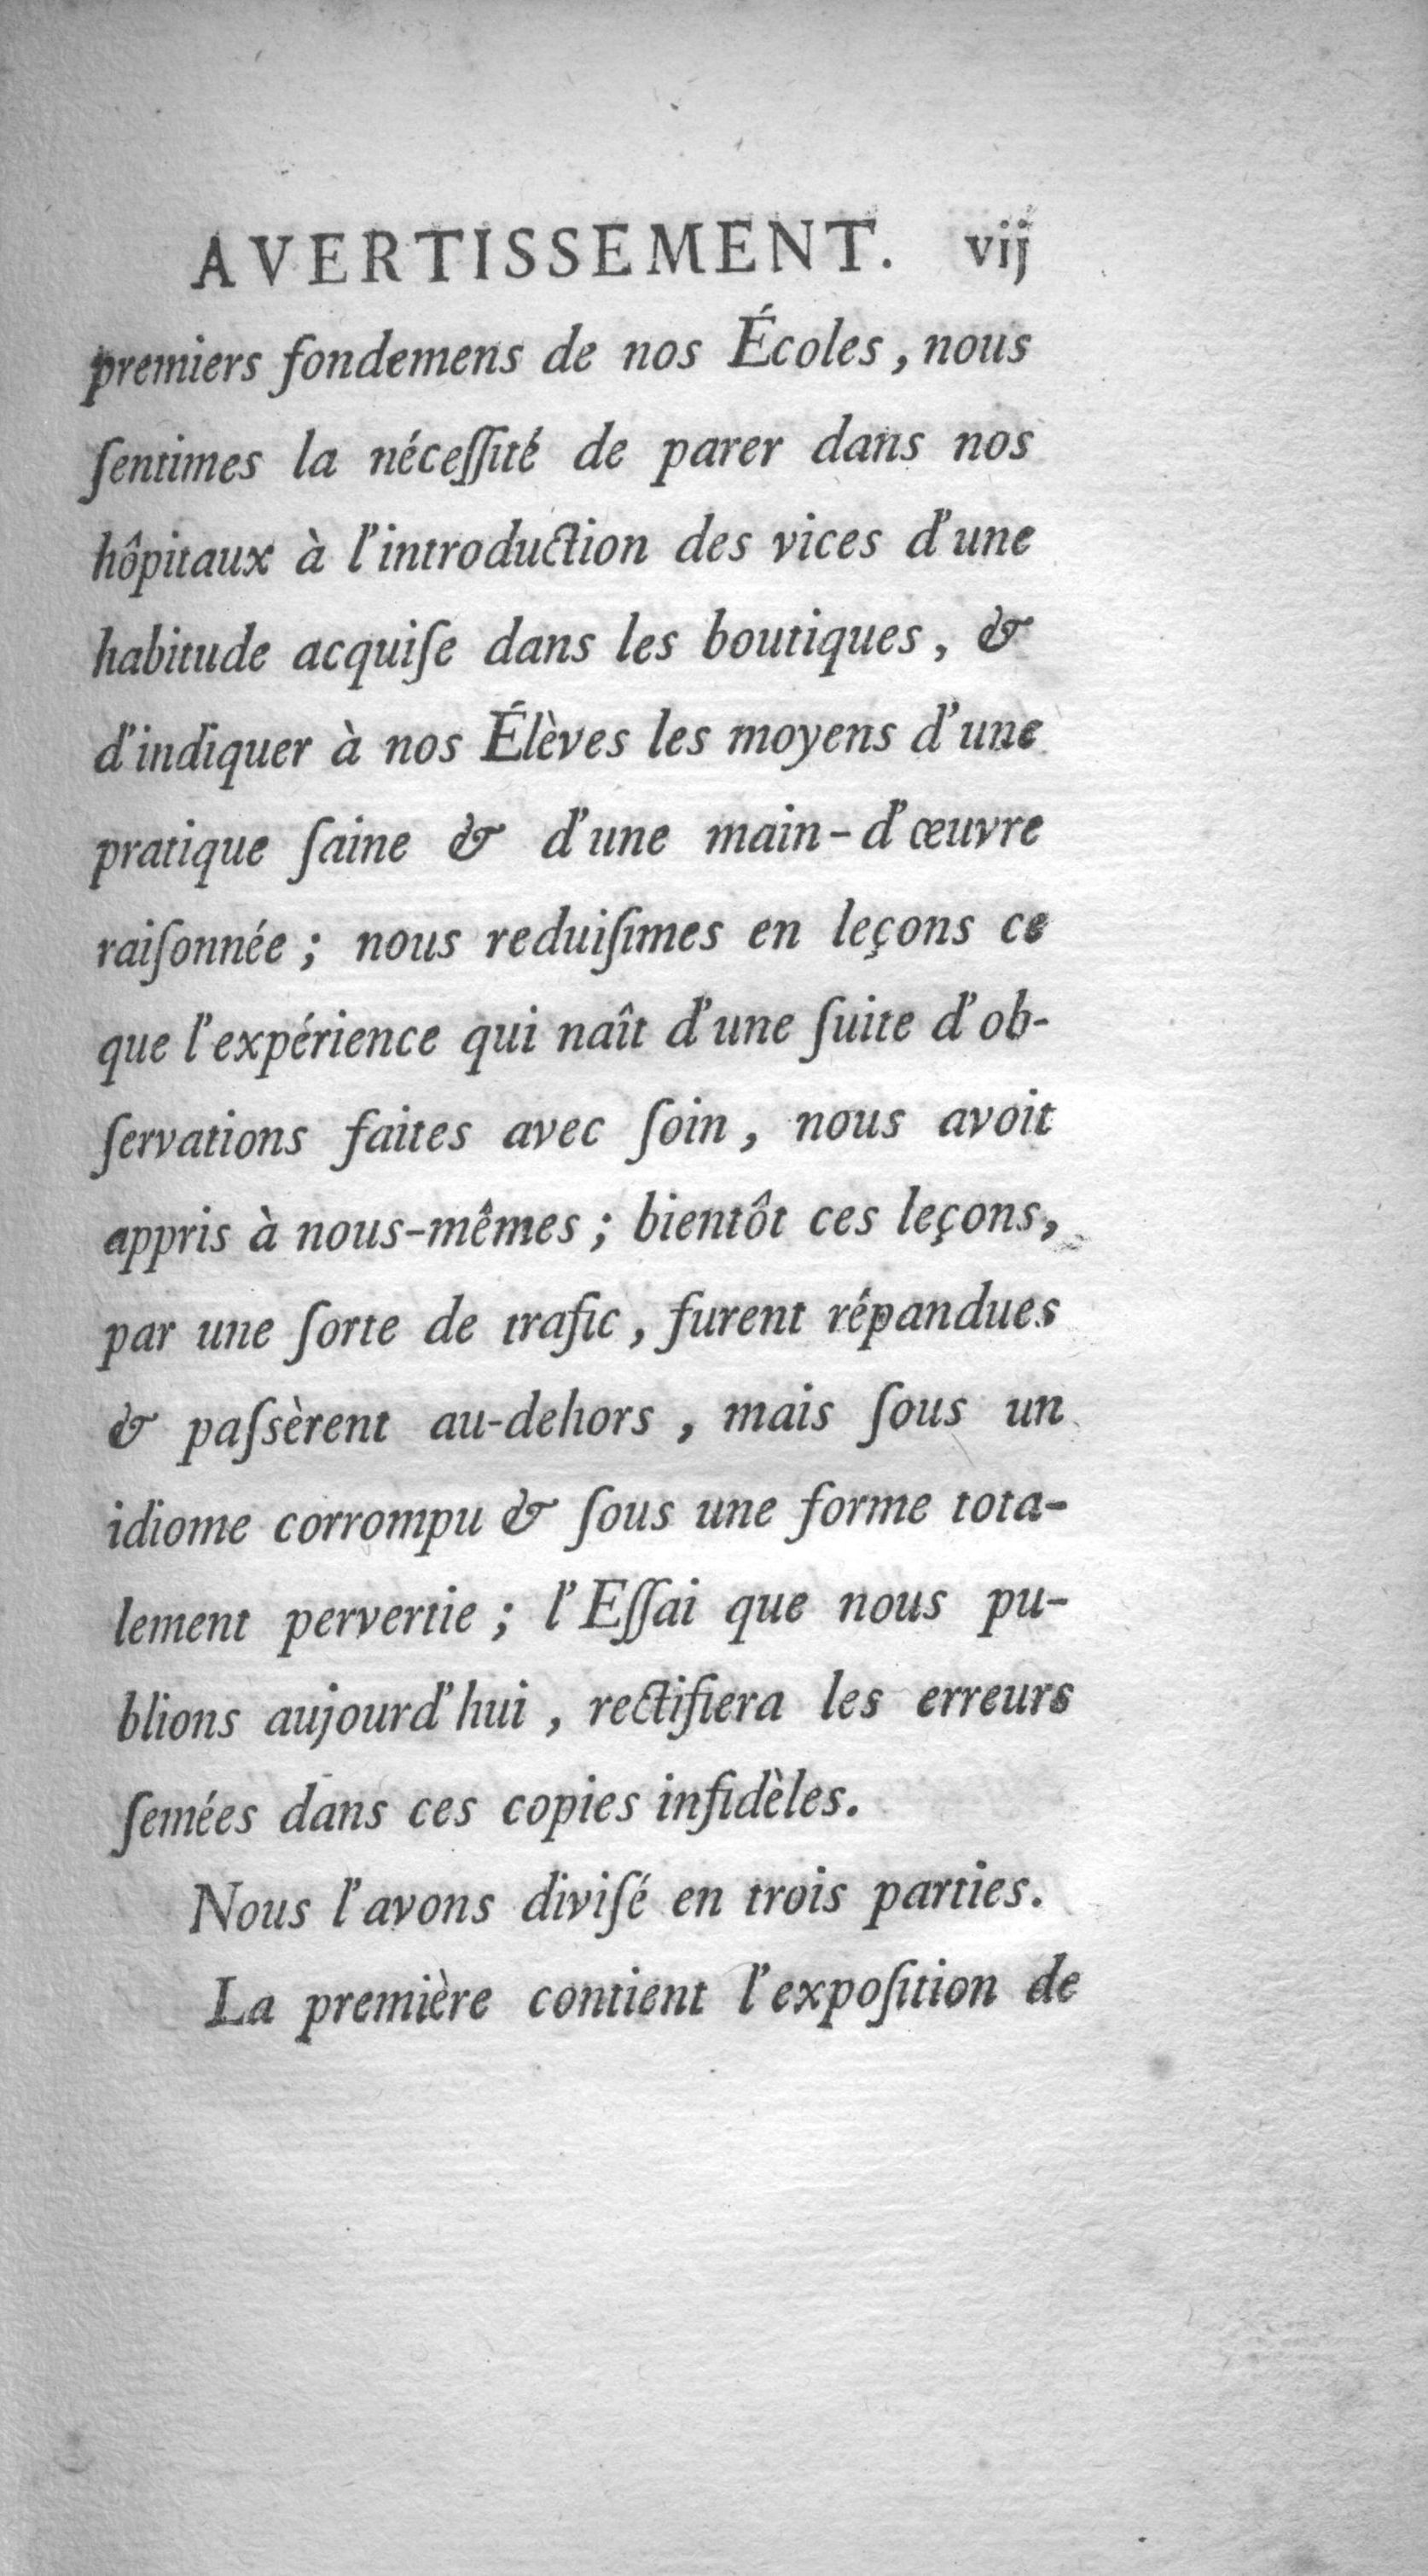 AVERTISSEMENT. vij
premiers fondemens de nos Écoles, nous
ſentimes la néceſſité de parer dans nos
hôpitaux à l'introduction des vices d'une
habitude acquiſe dans les boutiques, &
d'indiquer à nos Élèves les moyens d'une
pratique ſaine & d'une main-d'œuvre
raiſonnée; nous reduiſimes en leçons ce
que l'expérience qui naît d'une ſuite d'ob-
ſervations faites avec ſoin, nous avoit
appris à nous-mêmes; bientôt ces leçons,
par une ſorte de trafic, furent répandues
& paſsèrent au-dehors, mais ſous un
idiome corrompu & ſous une forme tota-
lement pervertie; l'Eſſai que nous pu-
blions aujourd'hui, rectifiera les erreurs
ſemées dans ces copies infidèles.
Nous l'avons diviſé en trois parties.
La première contient l'expoſition de